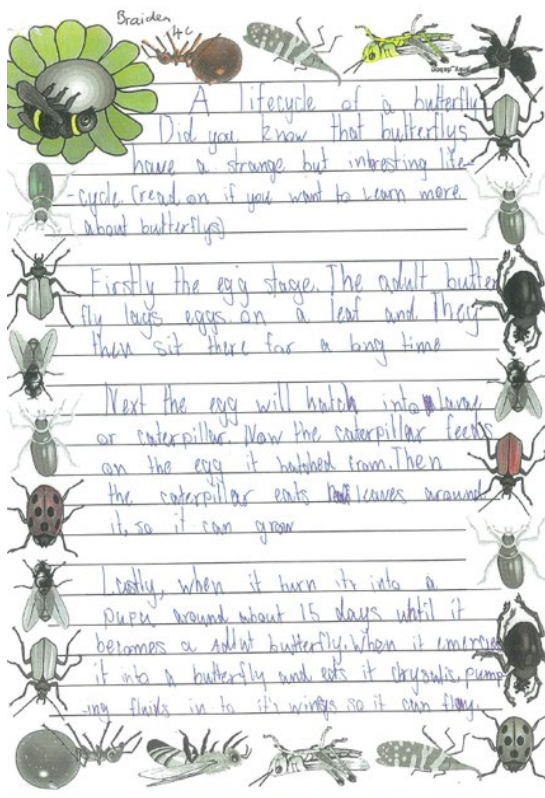 Braiden 4C
A lifecycle of a butterfly
Did you know that butterflys
have a strange but intresting life
-cycle. (read on if you want to learn more
about butterflys)
Firstly the egg stage. The adult butter
fly lays eggs on a leaf and They
then sit there for a long time
Next the egg will hatch into larae
or caterpillar. Now the caterpillar feeds
on the egg it hatched from. Then
the caterpillar eats leaves around
it, so it can grow
Lastly, when it turn it's into a
pupu around about 15 days until it
becomes a adult butterfly. When it emerges
it into a butterfly and eats it chrysalis pump
-ing fluids in to it's wings so it can flay.